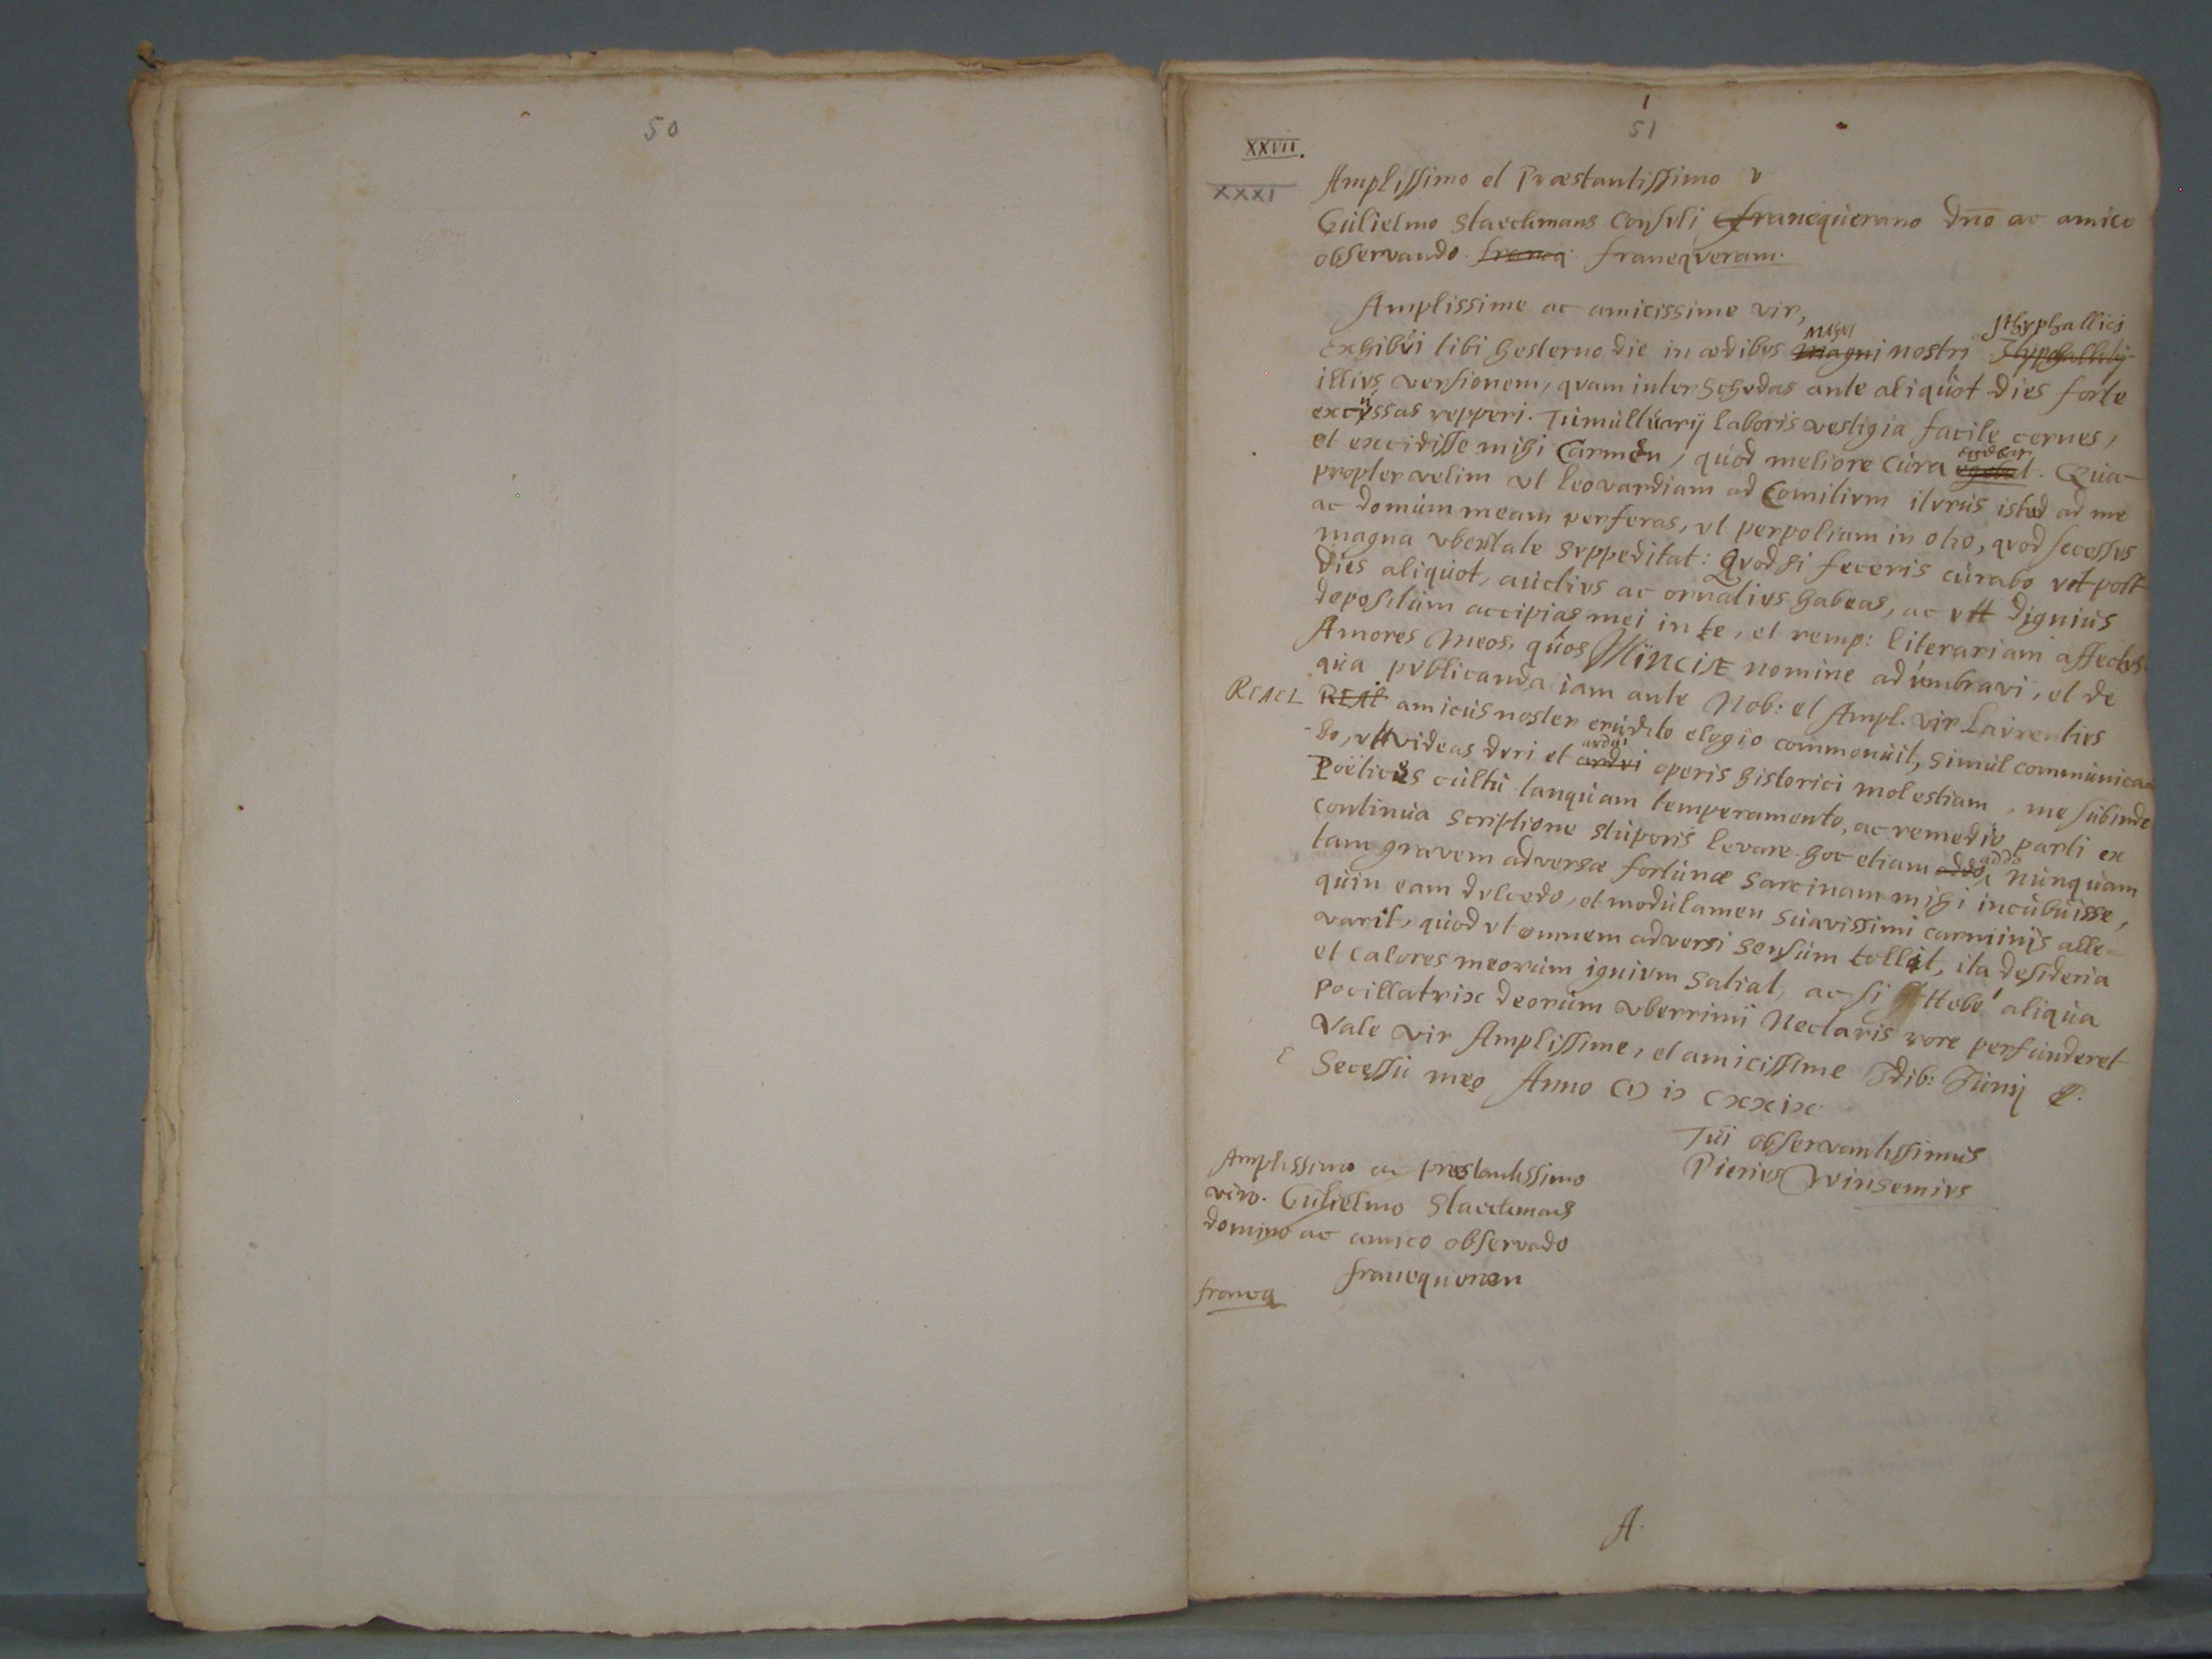 50
1
51
XXVII.
XXXI
Amplissimo et Præstantissimo v
Gulielmo Staeckmans Consuli franequerano dno ac amico
observando. franeq franequeram.
Amplissime ac amicissime vir,
Magni Ithyphallici
exhibui tibi hesterno die in ædibus magni nostri
illius versionem, quam inter schedas ante aliquot dies forte
excussas repperi. Tumultuarij laboris vestigia facile cernes,
et excidisse mihi Carmen, quod meliore cura egebat. Qua-
propter velim ut leovardiam ad Comitium iturus istud ad me
ac domum meam perferas, ut perpoliam in otio, quod secessus
magna ubertate suppeditat: Quod si feceris curabo ut post
dies aliquot, auctius ac ornatius habeas, ac ut dignius
depositum accipias mei in te, et remp: literariam affectus.
Amores meos, quos Minciæ nomine adumbravi, et de
qua publicanda iam ante Nob: et Ampl. vir Laurentius
REAEL REAL amicus noster erudito elogio commonuit, simul communica
-bo, ut videas duri et ardui ardui operis historici molestiam, me subinde
Poëticës cultu tanquam temperamento, ac remedio parti ex
continua scriptione stuporis levare. hoc etiam addo addo nunquam
tam gravem adversæ fortunæ sarcinam mihi incubuisse,
quin eam dulcedo, et modulamen suavissimi carminis alle-
varit, quod ut omnem adversi sensum tollit, ita desideria
et calores meorum ignium satiat, ac si Hebe aliqua
pocillatrix deorum uberrimi Nectaris rore perfunderet
Vale vir Amplissime, et amicissime Idib: Junij E.
E Secessu meo Anno CIↃ IↃ CXXIX.
Tui observantissimus
Pierius Winsemius
Amplissimo ac prestantissimo
viro. Gulielmo Staeckmans
domino ac amico observado
franequeram
franeq
A.